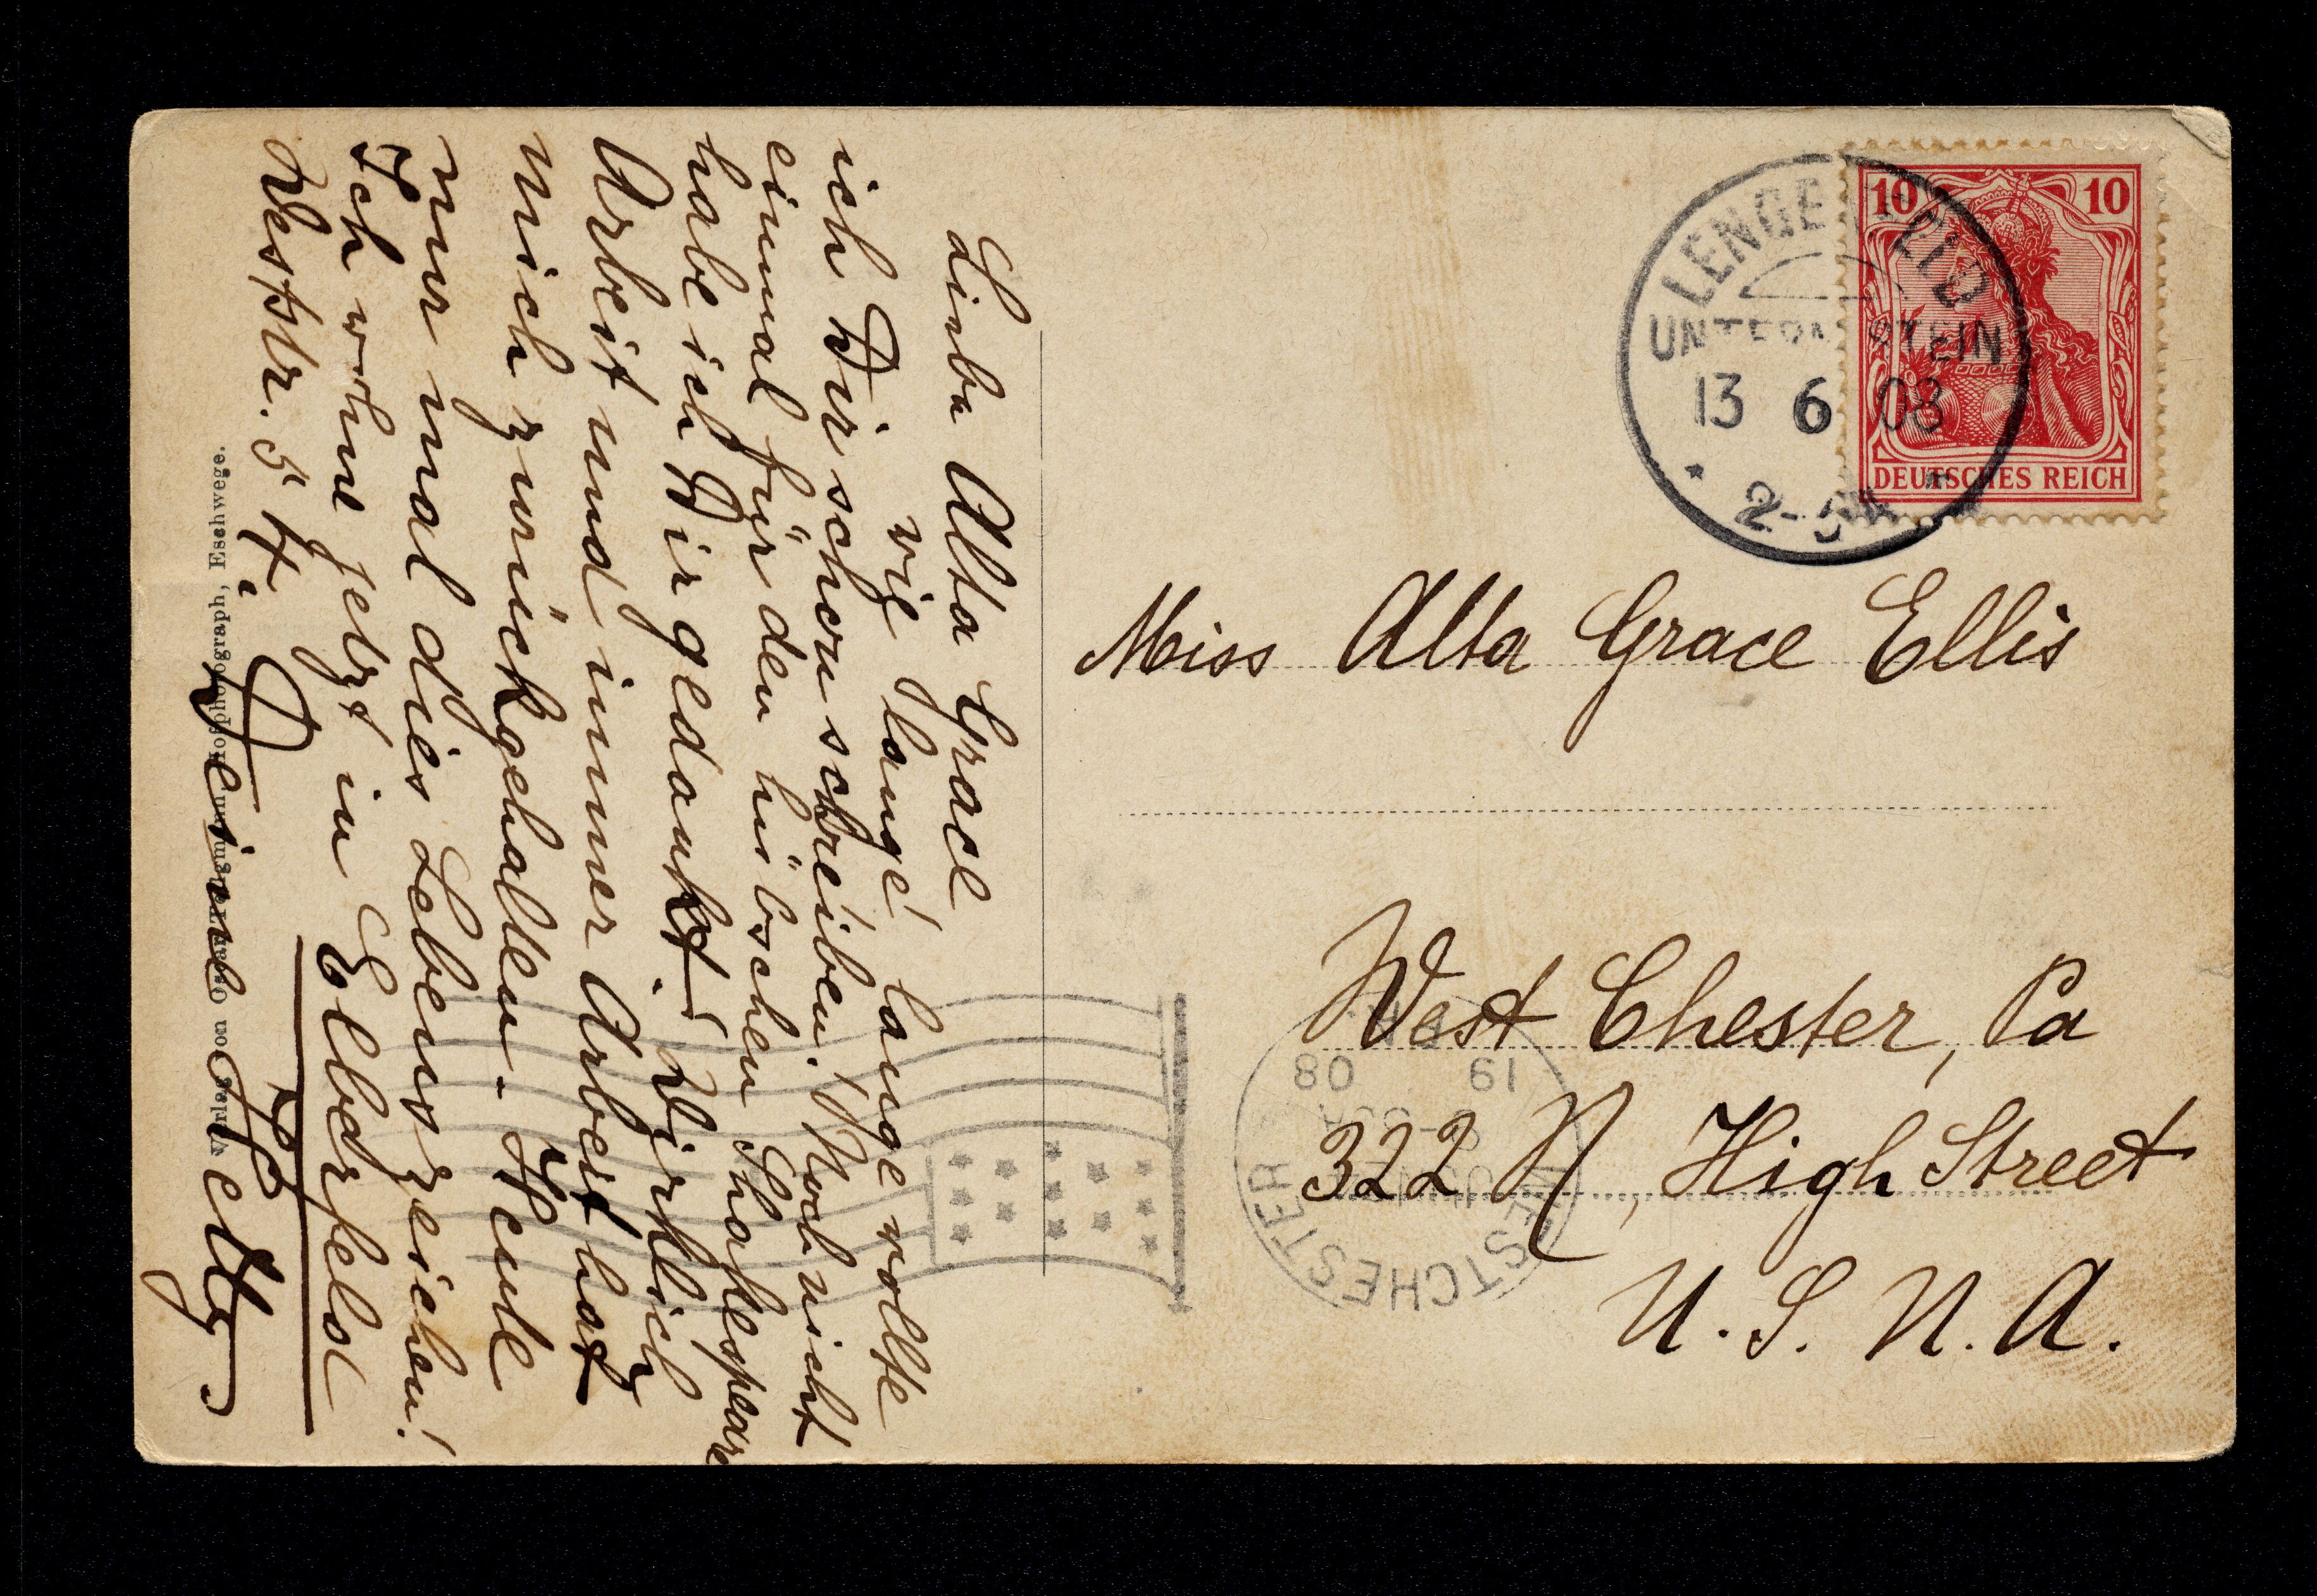 Liebe Alta Grace
wie lange! lange wollte
ich Dir schon schreiben! Noch nicht
einmal für den hübschen Shakespeare
habe ich Dir gedankt! Wirklich
Arbeit und immer Arbeit hat
mich zurückgehalten. Heute
nur mal dies Lebenszeichen!
Ich wohne jetzt in Elberfeld
Weststr. 54.
Deine Hedy
Verlag von Oskar Hofphotograph, Eschwege.
10 10
DEUTSCHES REICH
LENGENFELD
UNTERM STEIN
13 6 08
Miss Alta Grace Ellis
West Chester, Pa
322 N, High Street
U. S. N. A.
WESTCHESTER
PA.
JUN
19 08